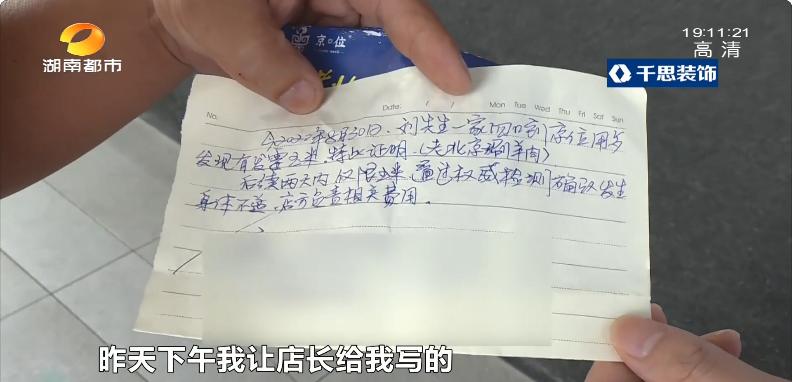 湖南都市
19:11:21
高清
千思装饰
京位
No.
Date. ( )
Mon Tue Wed Thu Fri Sat Sun
今2022年8月30日，刘先生一家四口到京位用歺
发现有发霉玉米，特此证明。（老北京涮羊肉）
后续两天内，仅限玉米，通过权威检测确认发生
身体不适，店方负责相关费用。
昨天下午我让店长给我写的